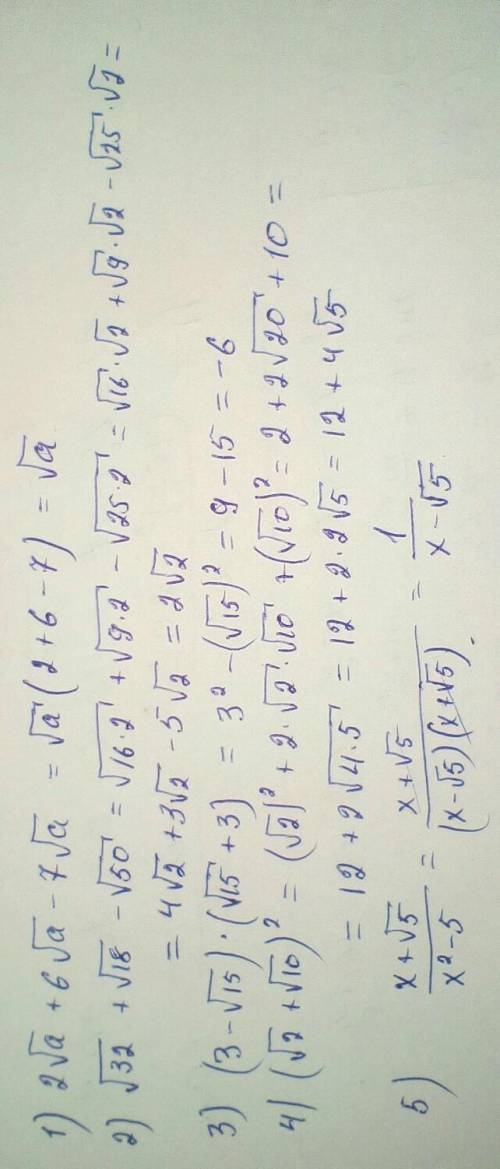 1) 2√a + 6√a - 7√a = √a (2 + 6 - 7) = √a
2) √32 + √18 - √50 = √16·2 + √9·2 - √25·2 = √16·√2 + √9·√2 - √25·√2 =
= 4√2 + 3√2 - 5√2 = 2√2
3) (3 - √15)·(√15 + 3) = 3² - (√15)² = 9 - 15 = -6
4) (√2 + √10)² = (√2)² + 2·√2·√10 + (√10)² = 2 + 2√20 + 10 =
= 12 + 2√4·5 = 12 + 2·2√5 = 12 + 4√5
5) x+√5 / x²-5 = x+√5 / (x-√5)(x+√5) = 1 / x-√5